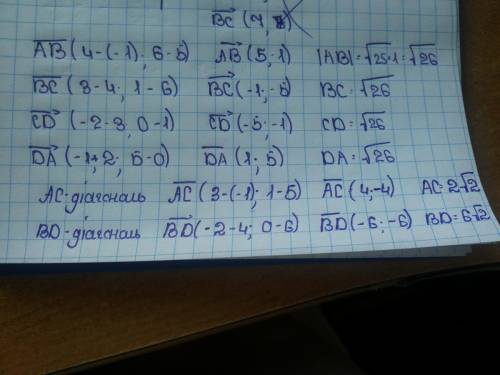 BC (7,
AB (4-(-1); 6-5) AB (5; 1) |AB| = √25+1 = √26
BC (3-4; 1-6) BC (-1; -5) BC = √26
CD (-2-3, 0-1) CD (-5; -1) CD = √26
DA (-1+2; 5-0) DA (1; 5) DA = √26
AC-діагональ AC (3-(-1); 1-5) AC (4,-4) AC = 2√2
BD-діагональ BD (-2-4; 0-6) BD (-6; -6) BD = 6√2